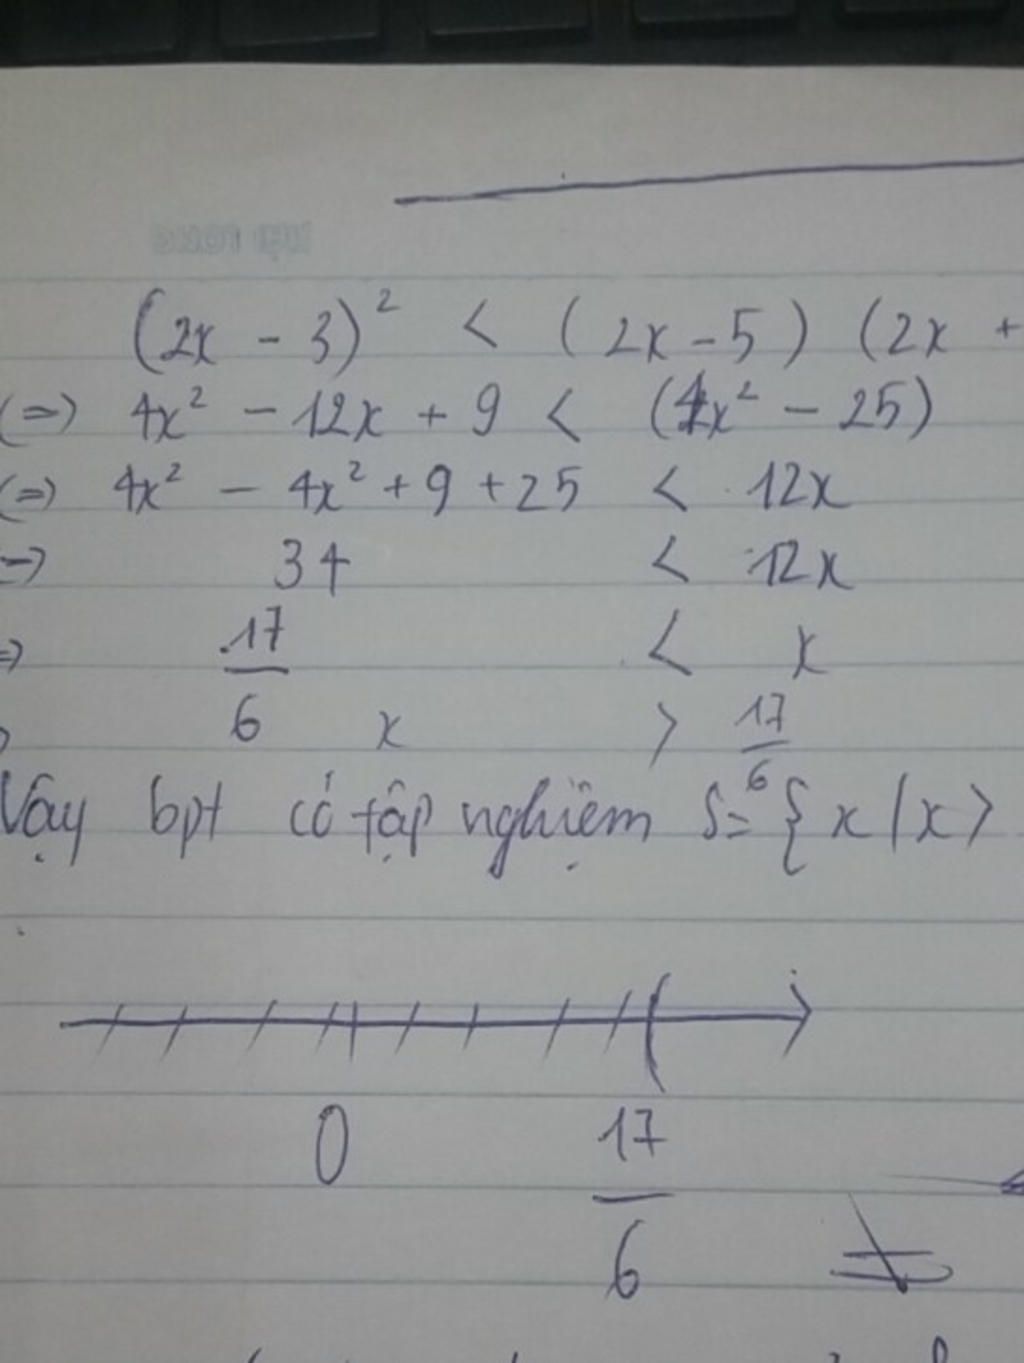 (2x - 3)² < (2x - 5) (2x +
(=) 4x² - 12x + 9 < (4x² - 25)
(=) 4x² - 4x² + 9 + 25 < 12x
=) 34 < 12x
=) 17/6 < x
) x > 17/6
Vậy bpt có tập nghiệm S = { x | x >
0 17/6